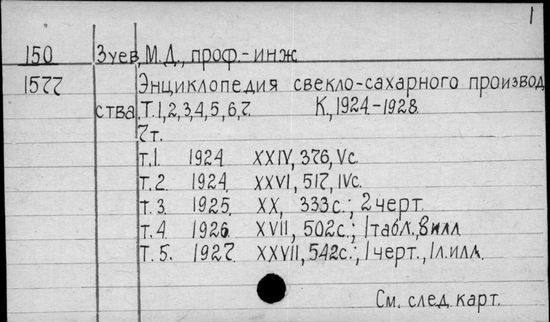 1
150 Зуев, М.Д., проф.-инж
1577 Энциклопедия свекло-сахарного производ
ства. Т.1,2,3,4,5,6,7. К., 1924-1928.
7т.
т.1. 1924 XXIV, 376, Vс.
т.2. 1924 XXVI, 517, IVс.
т.3. 1925 XX, 333с.; 2 черт.
т.4. 1926 XVII, 502с.; 1 табл., 8 илл
т.5. 1927. XXVII, 542с.; 1 черт., 1 л. илл.
См. след. карт.